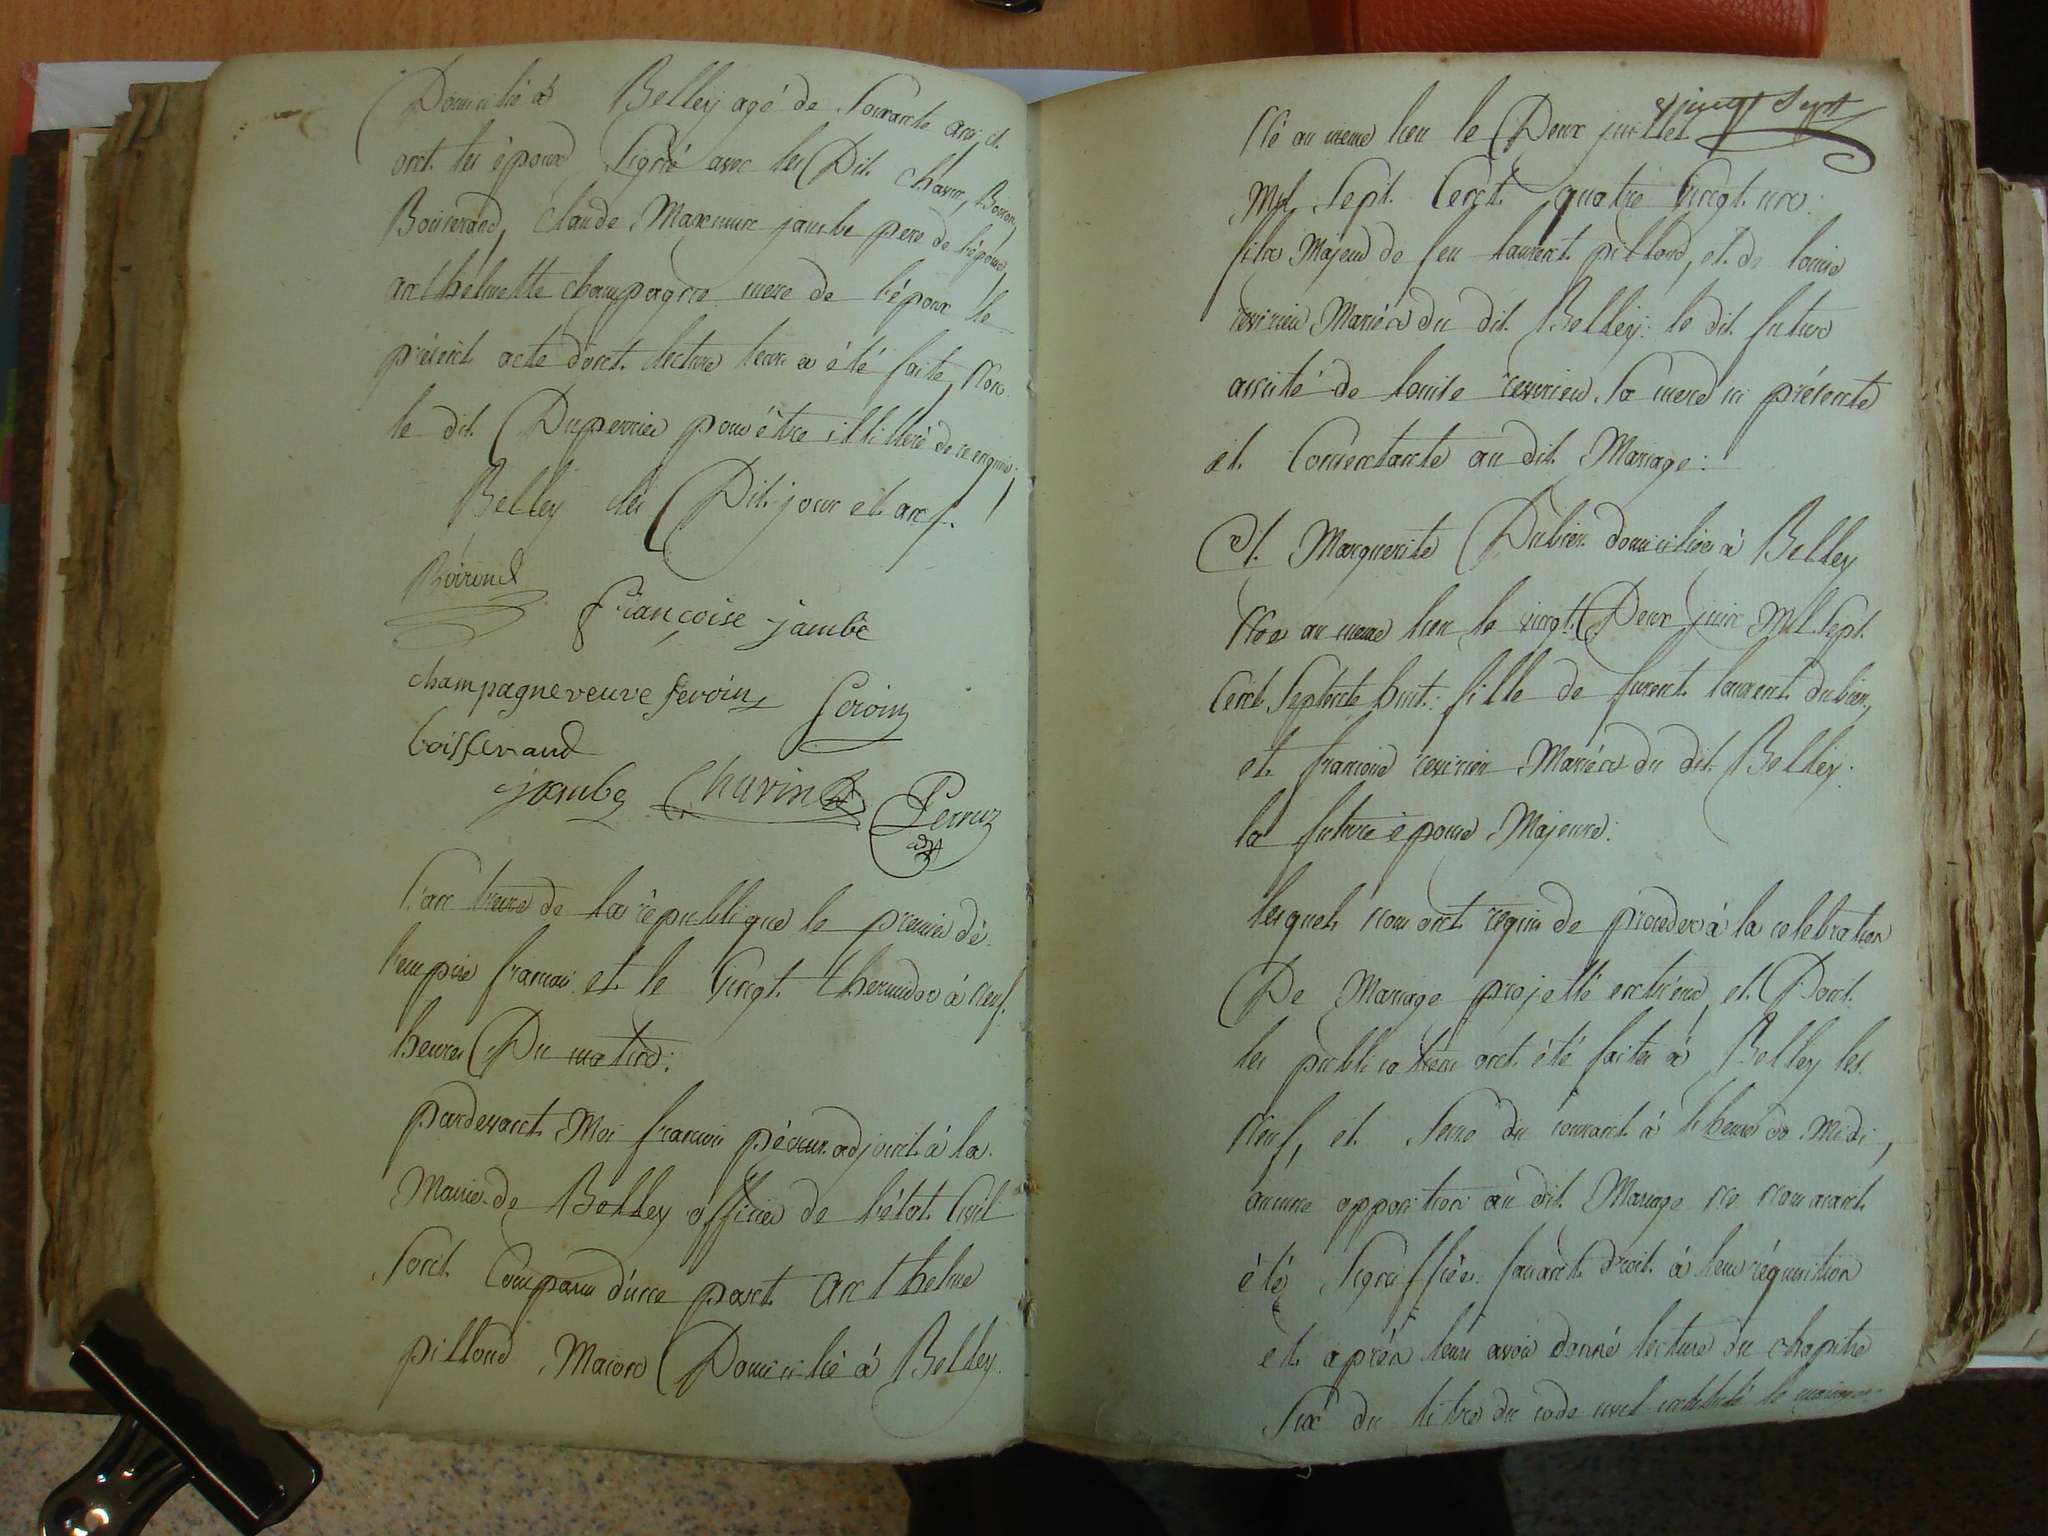 Domicilié à Belley agé de Soixante ans, et
ont les époux Signé avec les Dit Chavin, Boiron
Boisserand, Claude Maxenime jambe pere de l'épouse,
anthelmette champagne mere de l'époux le
présent acte dont lecture leur a été faite, Non
le dit Duperrier pour être illitteré de ce enquis;
Belley les Dit jour et an
Boirond
françoise jambe
champagne veuve fevoin
boisseraud
jambe Chavin Perruz
L'an treize de la république le premier de
l'empire francois et le Vingt thermidor à Neuf
heures Du matin:
pardevant Moi francois adjoint à la
Mairie de Belley officier de l'état Civil
Sont Comparus d'une part Anthelme
pilloud Macon Domicilié à Belley
vingt Sept
Né au meme lieu le Deux juillet
Mil Sept Cent quatre Vingt un:
fils Majeur de feu laurent pilloud, et de louise
Mariés du dit Belley: le dit futur
assisté de louise Sa mere ici présente
et Consentante au dit Mariage:
Et Marguerite Dubien domiciliée à Belley
Née au meme lieu le vingt Deux juin Mil Sept
Cent Septente huit: fille de furent laurent dubien,
et francoise Mariés du dit Belley.
la future épouse Majeure:
lesquels nous ont requis de proceder à la celebration
De Mariage projetté entr'eux, et Dont
les publications ont été faites à Belley les
Neuf, et Seize du courant à l'heure de Midi,
aucune opposition au dit Mariage ne nous aiant
été Signiffiée. faisant droit à leur réquisition
et aprés leurs avoir donné lecture du chapitre
Six du titre du code civil intitulé le mariage